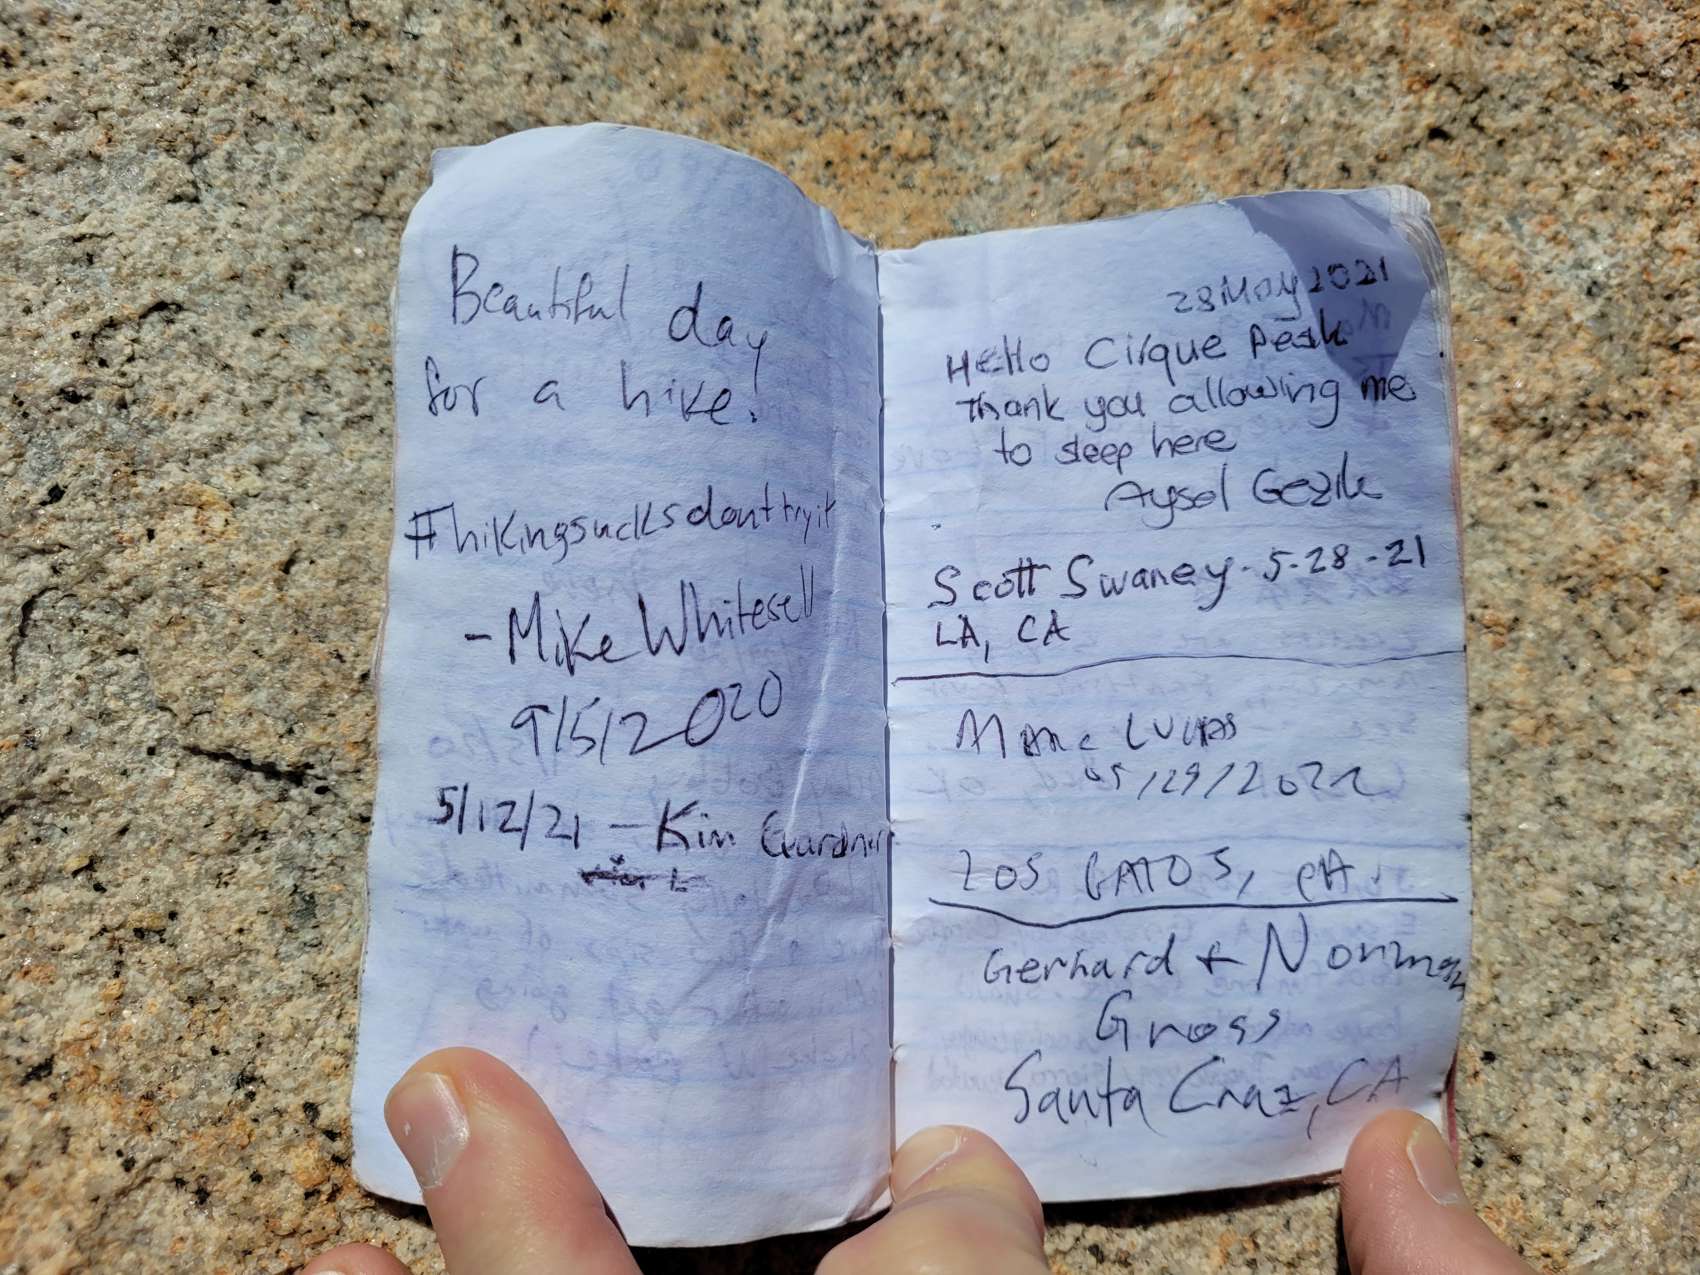 Beautiful day
for a hike!
#hikingsucksdonttryit
-Mike Whitesell
9/5/2020
5/12/21 - Kim Gardner
28 May 2021
Hello Cirque Peak
Thank you allowing me
to sleep here
Aysel Gezik
Scott Swaney - 5-28-21
LA, CA
Marc Lucas
05/29/2021
LOS GATOS, CA.
Gerhard + Norman
Gross
Santa Cruz, CA